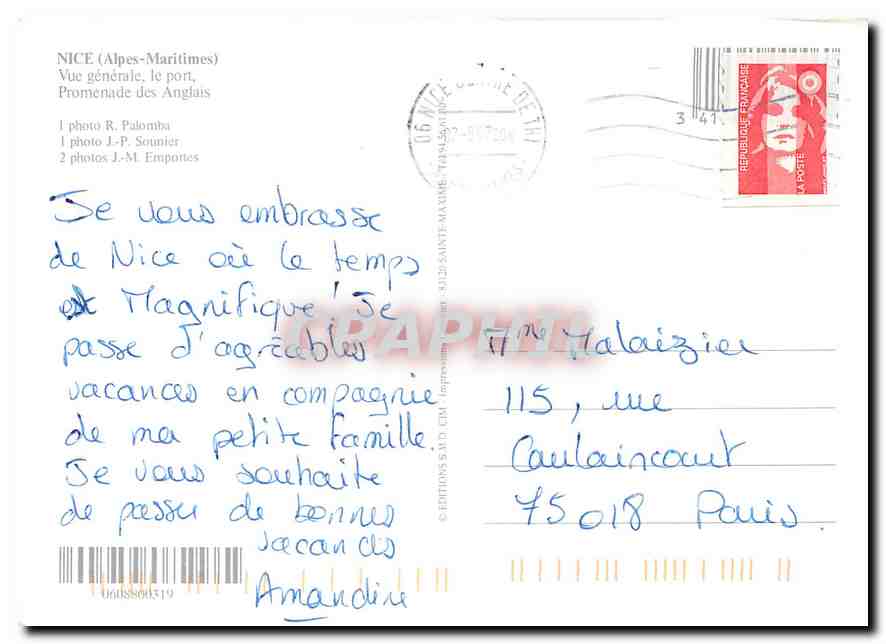 NICE (Alpes-Maritimes)
Vue générale, le port,
Promenade des Anglais
1 photo R. Palomba
1 photo J.-P. Sounier
2 photos J.-M. Emportes
Je vous embrasse
de Nice où le temps
est Magnifique! Je
passe d'agréables
vacances en compagnie
de ma petite famille.
Je vous souhaite
de passer de bonnes
vacances
Amandine
0608800319
© EDITIONS S.M.D. CIM - 83120 SAINTE-MAXIME
06 NICE
3 41
REPUBLIQUE FRANÇAISE
LA POSTE
CPAPHIL
Mme Malaizier
115, rue
Caulaincourt
75018 Paris.